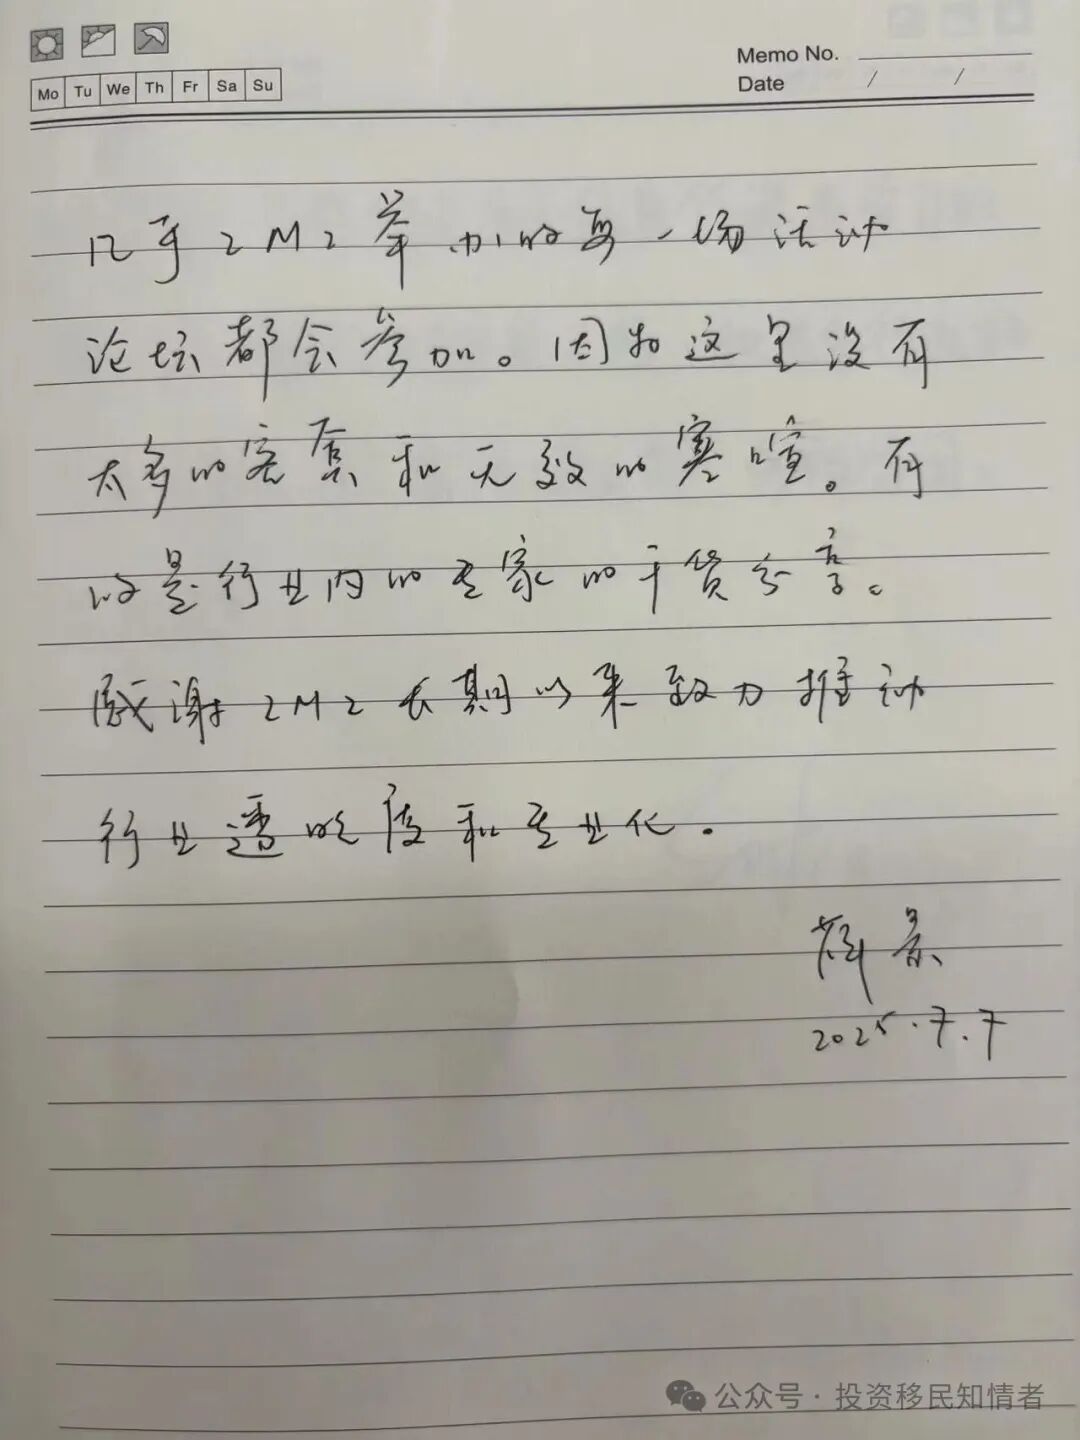 Memo No.
Mo Tu We Th Fr Sa Su
Date / /
几乎2M2举办的每一场活动
论坛都会参加。因为这里没有
太多的客套和无效的寒喧。有
的是行业内的专家的干货分享。
感谢2M2长期以来致力推动
行业透明度和专业化.
景
2025.7.7
公众号·投资移民知情者